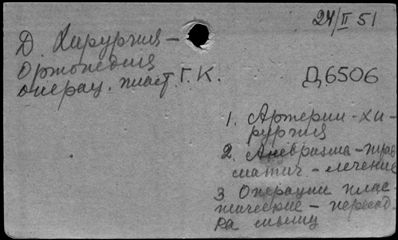 24/II 51
Д. Хирургия –
Ортопедия
операц. пласт. Г. К.
Д 6506
1. Артерии - хи-
рургия
2. Аневризма - трав
матич - лечение
3 Операции плас-
тические - пересад
ка мышц